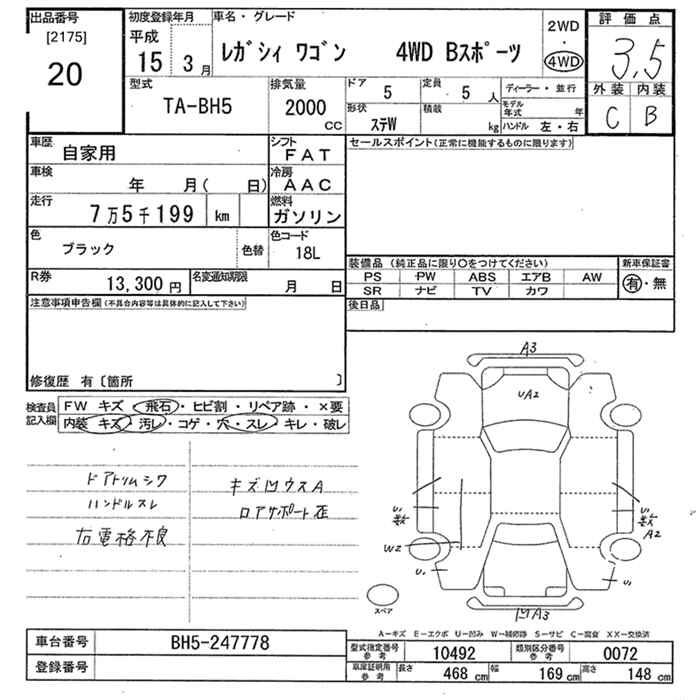 出品番号
[2175]
20
初度登録年月
平成
15 3月
車名・グレード
レガシィ ワゴン 4WD Bスポーツ
2WD
・
4WD
評価点
3.5
外装 内装
C B
型式
TA-BH5
排気量
2000
CC
ドア
5
定員
5 人
ディーラー・並行
モデル年式 年
形状
ステW
積載
kg
ハンドル 左・右
車歴
自家用
シフト
FAT
車検
年 月( 日)
冷房
AAC
走行
7万5千199 km
燃料
ガソリン
色
ブラック
色替
色コード
18L
R券
13,300 円
名変通知期限
月 日
セールスポイント(正常に機能するものに限ります)
装備品 (純正品に限り○をつけてください)
PS PW ABS エアB AW
SR ナビ TV カワ
新車保証書
有・無
後日品
注意事項申告欄(不具合内容等は具体的に記入して下さい)
修復歴 有〔箇所 〕
検査員記入欄
FW キズ・飛石・ヒビ割・リペア跡・×要
内装 キズ・汚レ・コゲ・穴・スレ・キレ・破レ
ドアトリムシワ
ハンドルスレ
右電格不良
キズ凹ウスA
ロアサポート歪
A3
UA2
U1
数
W2
U1
U1
数
A2
U1
凹A3
スペア
A―キズ E―エクボ U―凹み W―補修跡 S―サビ C―腐食 XX―交換済
車台番号
BH5-247778
登録番号
型式指定番号
参考
10492
類別区分番号
参考
0072
車庫証明用
参考
長さ 468 cm 幅 169 cm 高さ 148 cm